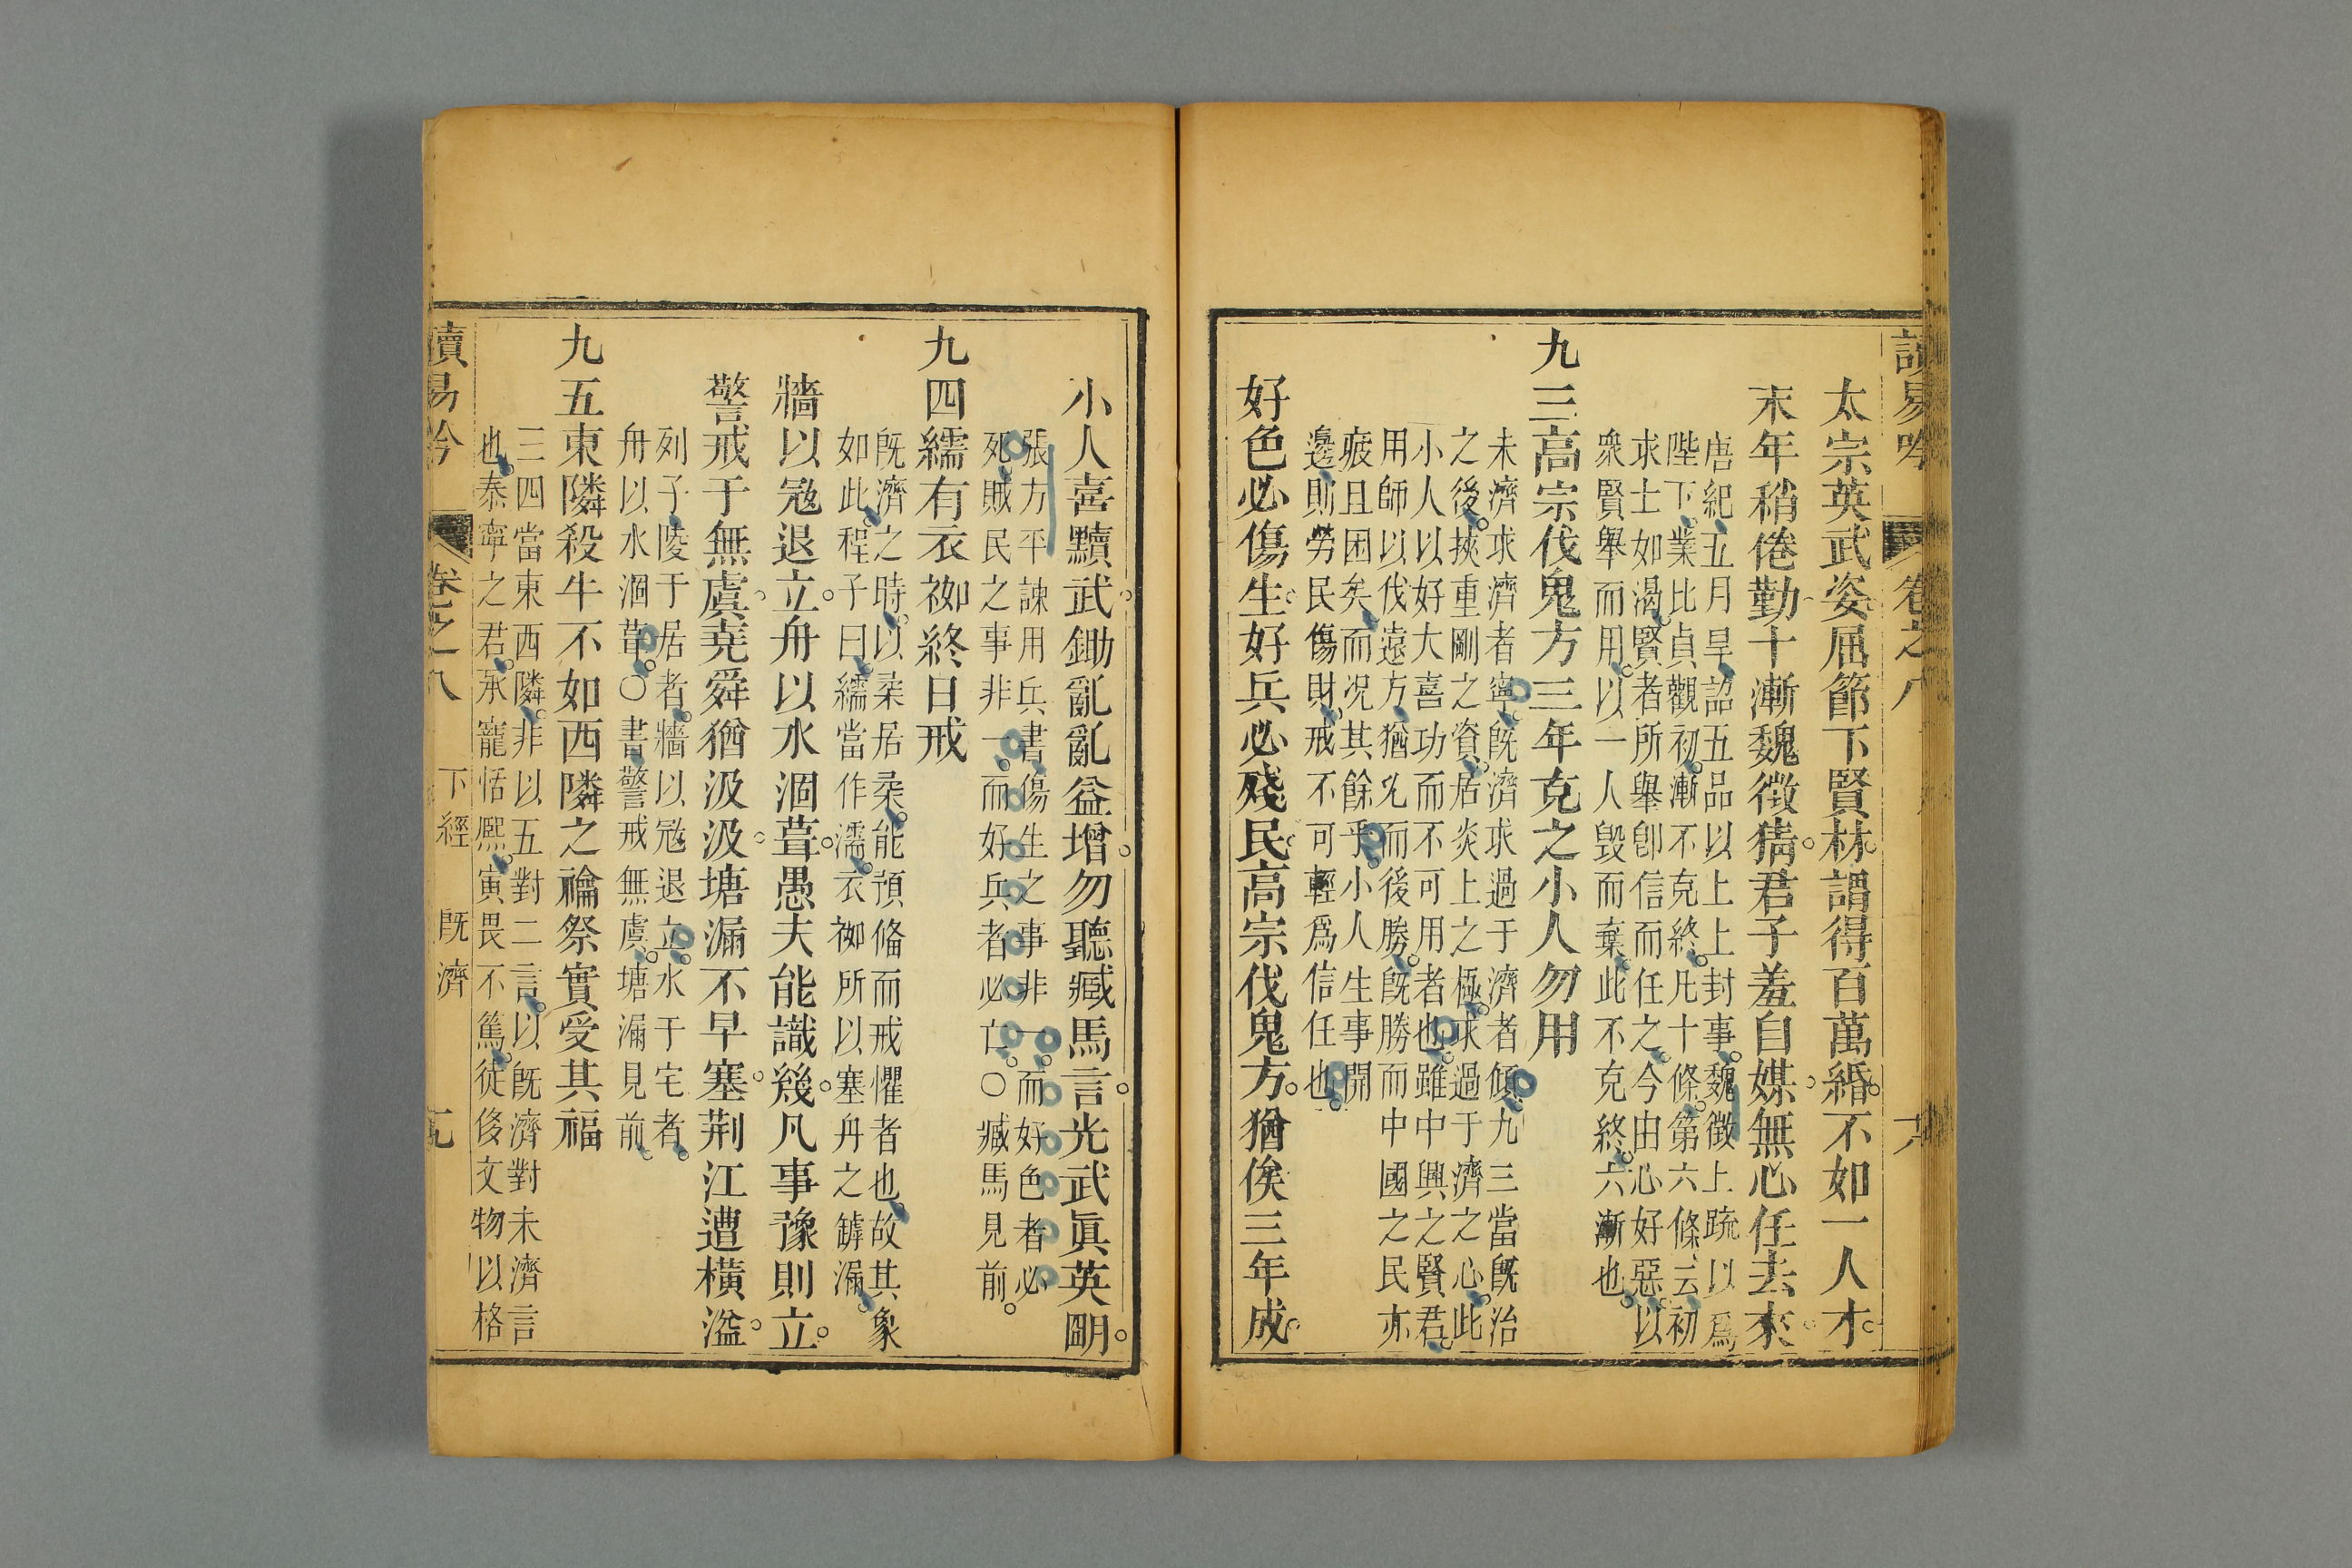 讀易吟
卷之八
太宗英武姿屈節下賢材謂得百萬緡不如一人才
末年稍倦勤十漸魏徵猜君子羞自媒無心任去來
唐紀五月旱詔五品以上上封事魏徵上疏以爲
陛下業比貞觀初漸不克終凡十條第六條云初
求士如渴賢者所舉卽信而任之今由心好惡以
衆賢舉而用以一人毁而棄此不克終六漸也
九三高宗伐鬼方三年克之小人勿用
未濟求濟者寧旣濟求過于濟者傾九三當旣治
之後挾重剛之資居炎上之極求過于濟之心此
小人以好大喜功而不可用者也雖中興之賢君
用師以伐遠方猶兊而後勝旣勝而中國之民亦
疲且困矣而况其餘乎小人生事開
邊則勞民傷財戒不可輕爲信任也
好色必傷生好兵必殘民高宗伐鬼方猶俟三年成
小人喜黷武鋤亂亂益增勿聽臧馬言光武眞英明
張方平諫用兵書傷生之事非一而好色者必
死賊民之事非一而好兵者必亡○臧馬見前
九四繻有衣袽終日戒
旣濟之時以柔居柔能預備而戒懼者也故其象
如此程子曰繻當作濡衣袽所以塞舟之罅漏
牆以𡍼退立舟以水涸葺愚夫能識幾凡事豫則立
警戒于無虞堯舜猶汲汲塘漏不早塞荆江遭橫溢
列子陵于居者牆以𡍼退立水于宅者
舟以水涸葺○書警戒無虞塘漏見前
九五東隣殺牛不如西隣之禴祭實受其福
三四當東西隣非以五對二言以旣濟對未濟言
也泰寧之君承寵恬熈寅畏不篤徒俊文物以格
讀易吟
卷之八
下經
旣濟